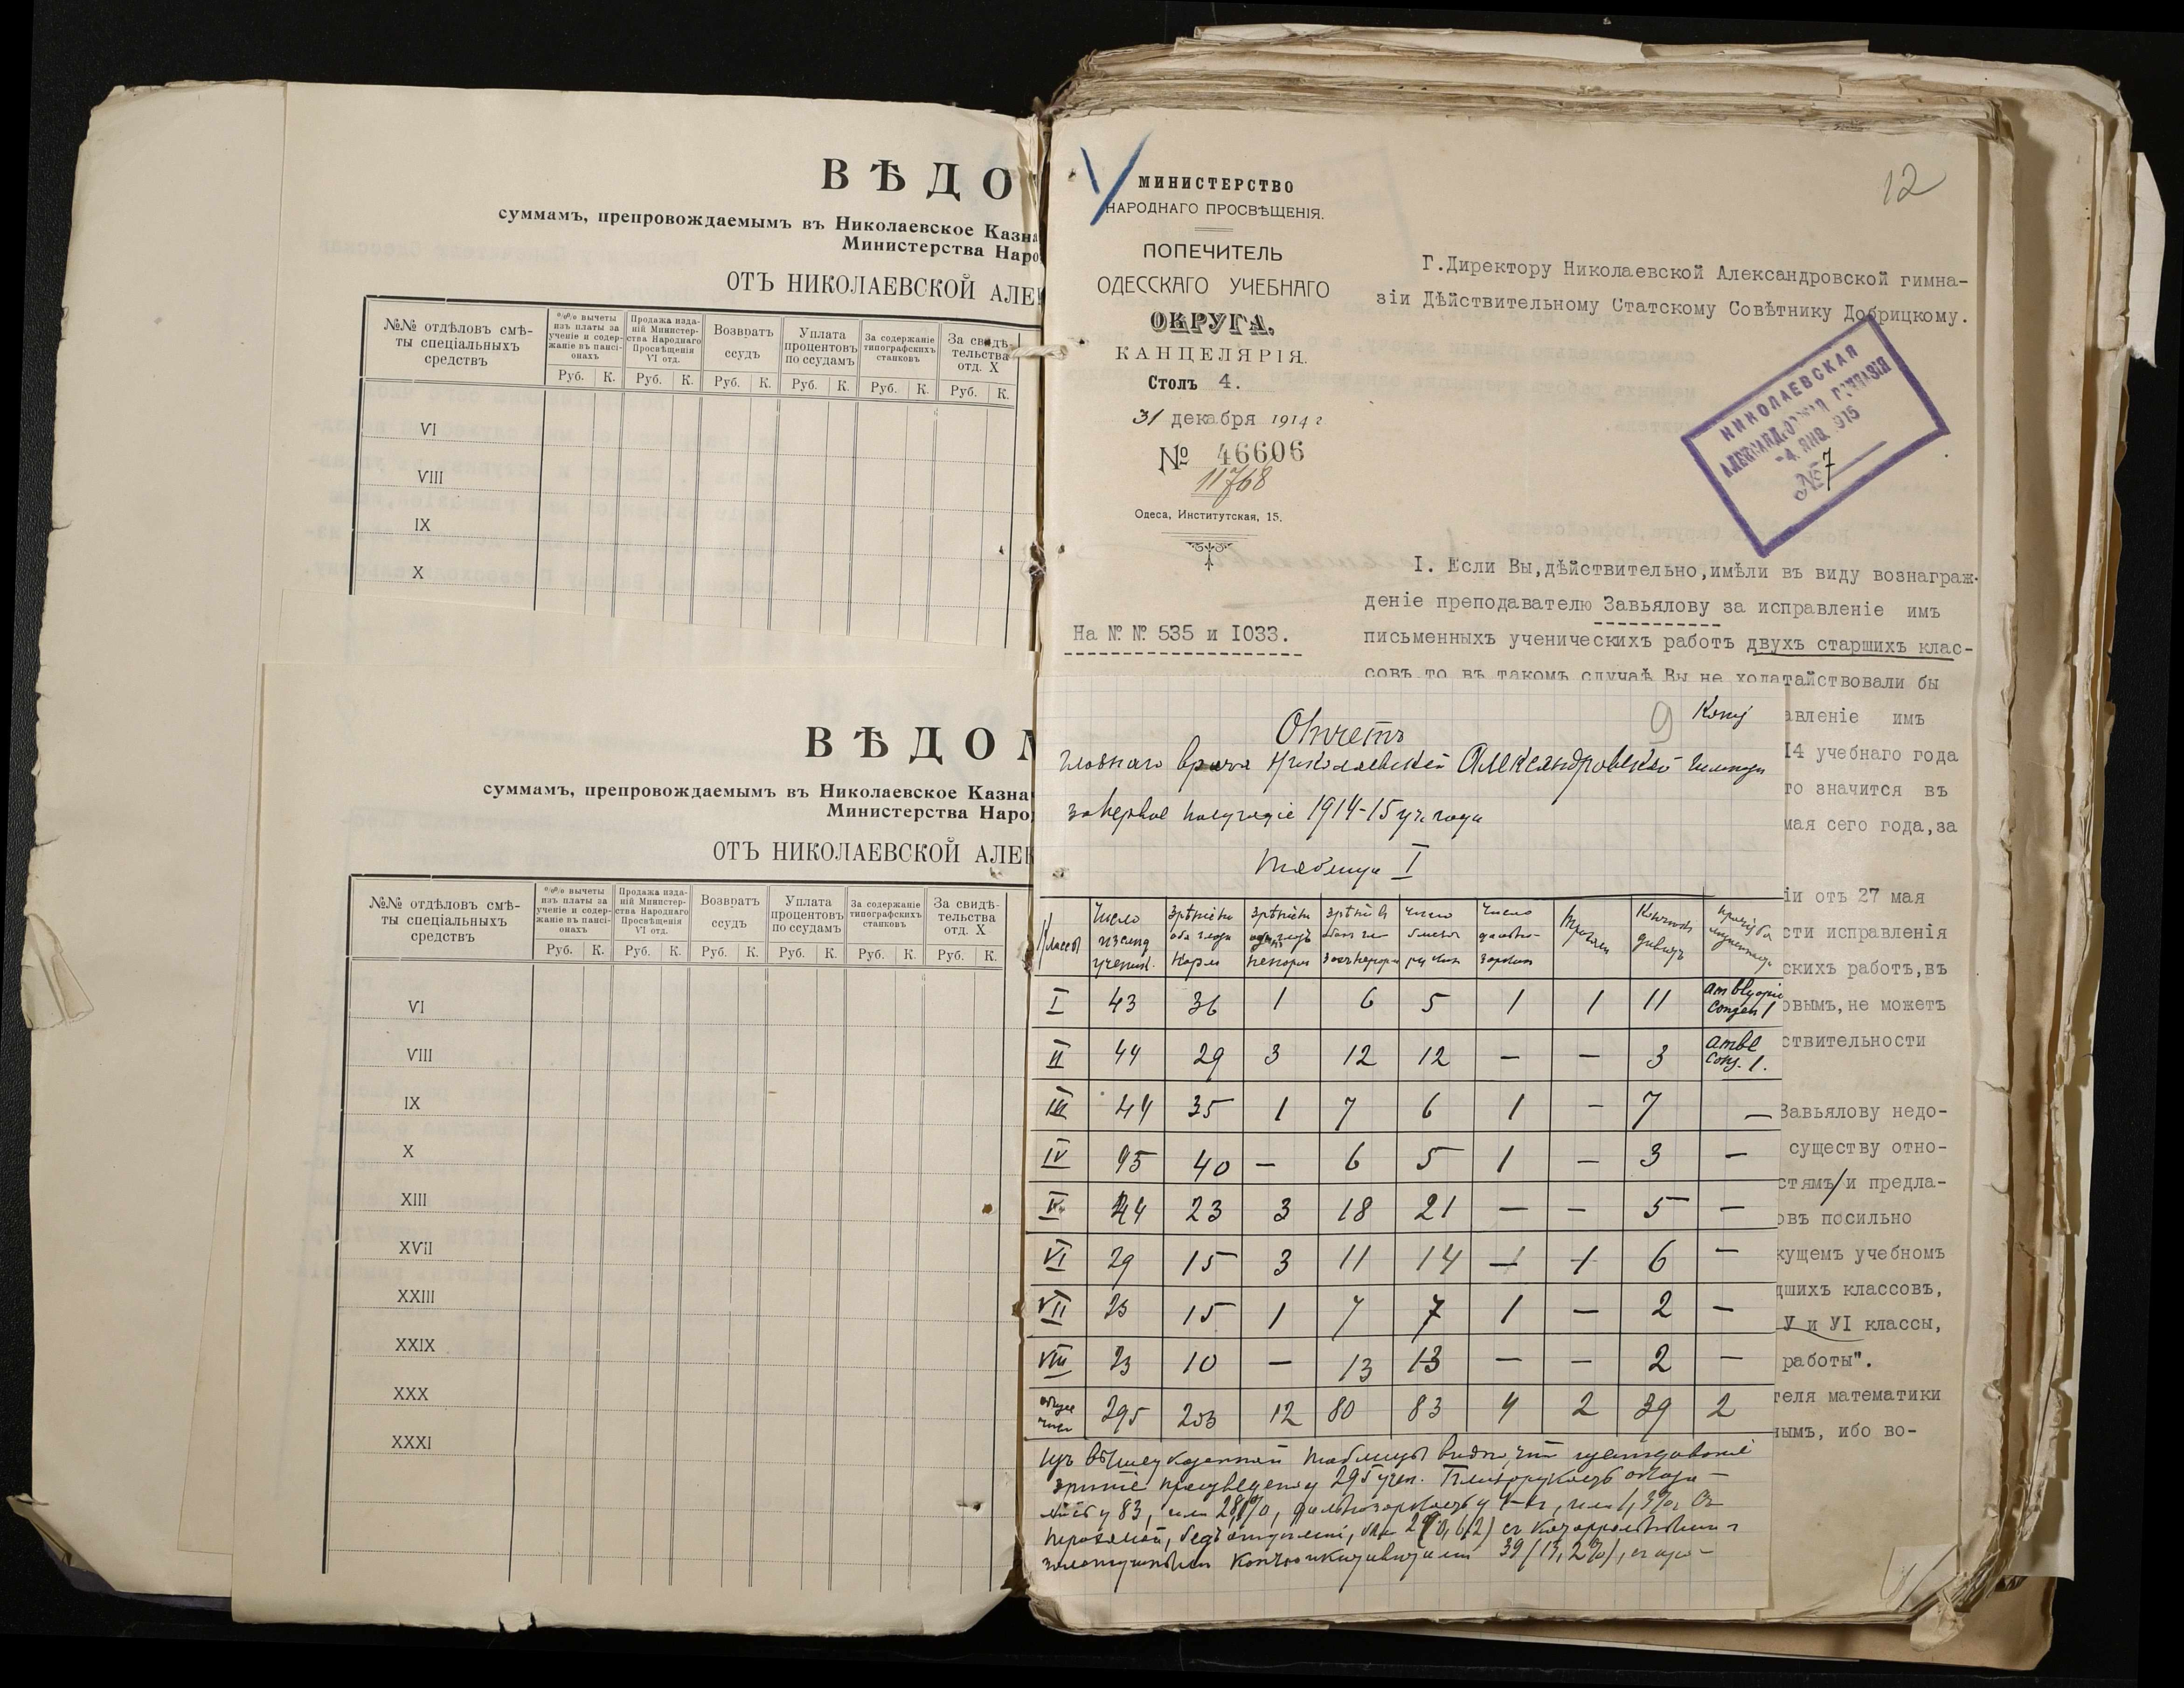 ВѢДО
суммамъ, препровождаемымъ въ Николаевское Казна
Министерства Наро
ОТЪ НИКОЛАЕВСКОЙ АЛЕК
№№ отдѣловъ смѣ-
ты спеціальныхъ
средствъ
%% вычеты
изъ платы за
ученіе и содер-
жаніе въ пансі-
онахъ
Продажа изда-
ній Министер-
ства Народнаго
Просвѣщенія
VI отд.
Возвратъ
ссудъ
Уплата
процентовъ
по ссудамъ
За содержаніе
типографскихъ
станковъ
За свидѣ-
тельства
отд. X
Руб. К. Руб. К. Руб. К. Руб. К. Руб. К. Руб. К.
VI
VIII
IX
X
ВѢДОМ
суммамъ, препровождаемымъ въ Николаевское Казна
Министерства Наро
ОТЪ НИКОЛАЕВСКОЙ АЛЕК
№№ отдѣловъ смѣ-
ты спеціальныхъ
средствъ
%% вычеты
изъ платы за
ученіе и содер-
жаніе въ пансі-
онахъ
Продажа изда-
ній Министер-
ства Народнаго
Просвѣщенія
VI отд.
Возвратъ
ссудъ
Уплата
процентовъ
по ссудамъ
За содержаніе
типографскихъ
станковъ
За свидѣ-
тельства
отд. X
Руб. К. Руб. К. Руб. К. Руб. К. Руб. К. Руб. К.
VI
VIII
IX
X
XIII
XVII
XXIII
XXIX
XXX
XXXI
12
МИНИСТЕРСТВО
НАРОДНАГО ПРОСВѢЩЕНІЯ.
ПОПЕЧИТЕЛЬ
ОДЕССКАГО УЧЕБНАГО
ОКРУГА,
КАНЦЕЛЯРІЯ.
Столъ 4.
31 декабря 1914 г
№ 46606
11768
Одеса, Институтская, 15.
На № № 535 и I033.
Г.Директору Николаевской Александровской гимна-
зіи Дѣйствительному Статскому Совѣтнику Добрицкому.
НИКОЛАЕВСКАЯ
АЛЕКСАНДРОВСКАЯ ГИМНАЗІЯ
-4. ЯНВ 915
№ 7
I. Если Вы,дѣйствительно,имѣли въ виду вознаграж-
деніе преподавателю Завьялову за исправленіе имъ
письменныхъ ученическихъ работъ двухъ старшихъ клас-
совъ,то въ такомъ случаѣ Вы не ходатайствовали бы
авленіе имъ
I4 учебнаго года
то значится въ
мая сего года,за
іи отъ 27 мая
сти исправленія
скихъ работъ,въ
овымъ,не можетъ
ствительности
Завьялову недо-
существу отно-
стямъ/и предла-
овъ посильно
кущемъ учебномъ
дшихъ классовъ,
У и УІ классы,
работы".
теля математики
нымъ, ибо во-
9
Отчетъ
главнаго врача Николаевской Александровской
за первое полугодіе 1914-15 уч. года
Таблица I
Классы
Число
ученик.
I 43 36 1 6 5 1 1 11 amblyopia congen 1
II 44 29 3 12 12 — — 3 ambl cong. 1.
III 44 35 1 7 6 1 — 7 —
IV 45 40 — 6 5 1 — 3 —
V 44 23 3 18 21 — — 5 —
VI 29 15 3 11 14 — 1 6 —
VII 23 15 1 7 7 1 — 2 —
VIII 23 10 — 13 13 — — 2 —
общее число 295 203 12 80 83 4 2 39 2
Изъ вышеуказанной таблицы видно, что изслѣдованіе
зрѣнія произведено у 295 учен. Близорукость оказа-
лась у 83, или 28,1%, дальнозоркость у 4-хъ, или 1,3%, съ
трахомой, 2
39 (13,2%), съ